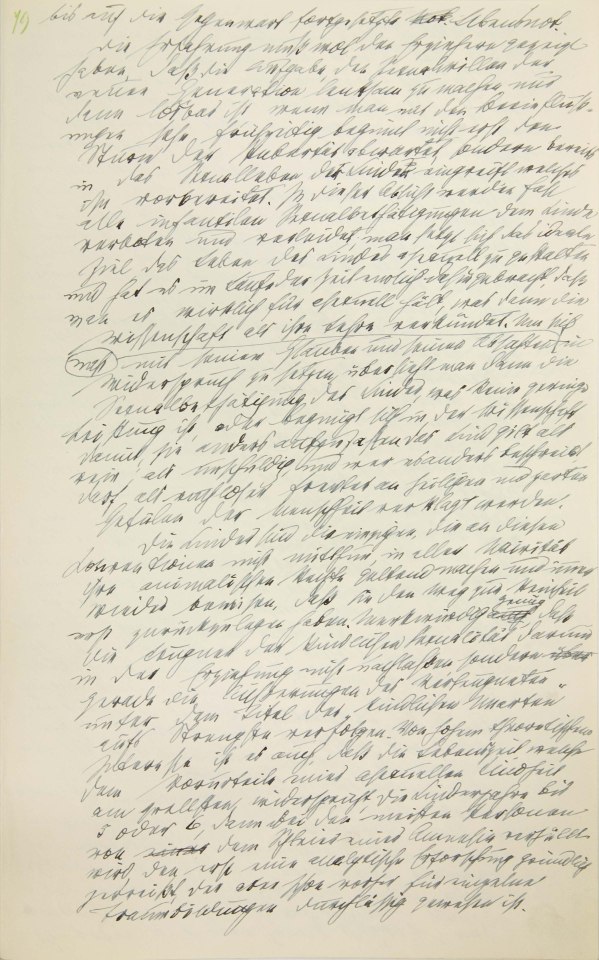 19
bis auf die Gegenwart fortgesetzte Lebensnot.
Die Erfahrung muß wol den Erziehern gezeigt
haben, daß die Aufgabe den Sexualwillen der
neuen Generation lenksam zu machen nur
dann lösbar ist wenn man mit den Beeinfluß-
ungen sehr frühzeitig beginnt nicht erst den
Sturm der Pubertät abwartet, sondern bereits
in das Sexualleben der Kinder eingreift welches
ihn vorbereitet. In dieser Absicht werden fast
alle infantilen Sexualbethätigungen dem Kinde
verboten und verleidet, man setzt sich das ideale
Ziel das Leben des Kindes asexuell zu gestalten
und hat es im Laufe der Zeit endlich dahin gebracht, daß
man es wirklich für asexuell hält, was dann die
Wissenschaft als ihre Lehre verkündet. Um sich
nicht mit seinem Glauben und seinen Absichten in
Widerspruch zu setzen, übersieht man dann die
Sexualbethätigung des Kindes, was keine geringe
Leistung ist, oder begnügt sich in der Wissenschaft
damit, sie anders aufzufassen. Das Kind gilt als
rein, als unschuldig und wer es anders beschreibt
darf als ruchloser Frevler an heiligen und zarten
Gefülen der Menschheit verklagt werden.
Die Kinder sind die einzigen, die an diesen
Konventionen nicht mitthun, in aller Naivität
ihre animalischen Rechte geltend machen und immer
wieder beweisen, daß sie den Weg zur Reinheit
erst zurückzulegen haben. Merkwürdig genug, daß
die Leugner der kindlichen Sexualität darum
in der Erziehung nicht nachlassen sondern
gerade die Äußerungen des Verleugneten
unter dem Titel der „kindlichen Unarten“
aufs Strengste verfolgen. Von hohem theoretischem
Interesse ist es auch, daß die Lebenszeit welche
dem Vorurteil einer asexuellen Kindheit
am grellsten widerspricht, die Kinderjahre bis
5 oder 6, dann bei den meisten Personen
von dem Schleier einer Amnesie verhüllt
wird, den erst eine analytische Erforschung gründlich
zerreißt, der aber schon vorher für einzelne
Traumbildungen durchlässig gewesen ist.